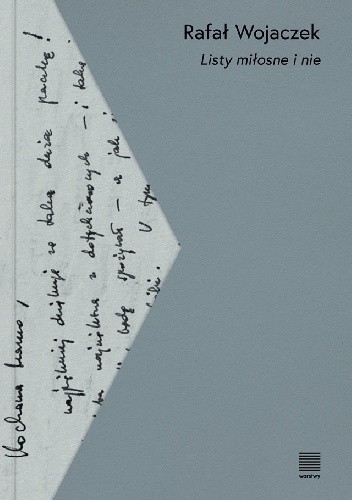 Rafał Wojaczek
Listy miłosne i nie
Kochana Mamo,
najpiękniej dziękuję za taką dużą paczkę!
największa z dotychczasowych – i taka
będę spożywał – a jak
W tym
warstwy